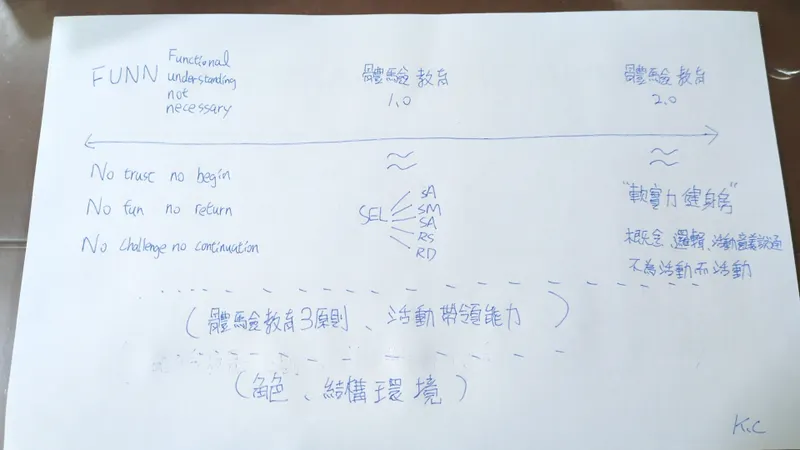 FUNN
Functional
understanding
not
necessary
體驗教育
1.0
體驗教育
2.0
No trust no begin
No fun no return
No challenge no continuation
≈
SEL
SA
SM
SA
RS
RD
≈
"軟實力健身房"
概念、邏輯、活動意義說通
不為活動而活動
(體驗教育3原則、活動帶領能力)
(角色、結構環境)
K.C